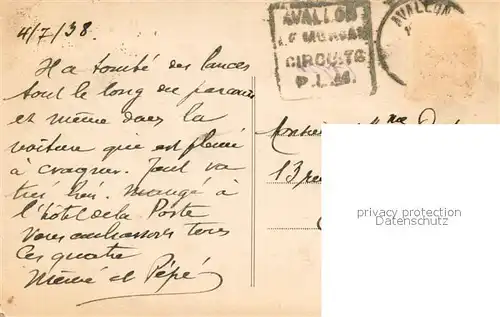 4/7/38.
AVALLON
LE MORVAN
CIRCUITS
P.L.M.
AVALLON
Il a tombé des lances
tout le long du parcours
et même dans la
voiture que est
à craquer. Tout va
très bien. Mangé à
l'hôtel de la Poste
Vous embrassons tous
les quatre
Mémé et Pépé
Monsieur Mme
13 rue
privacy protection
Datenschutz